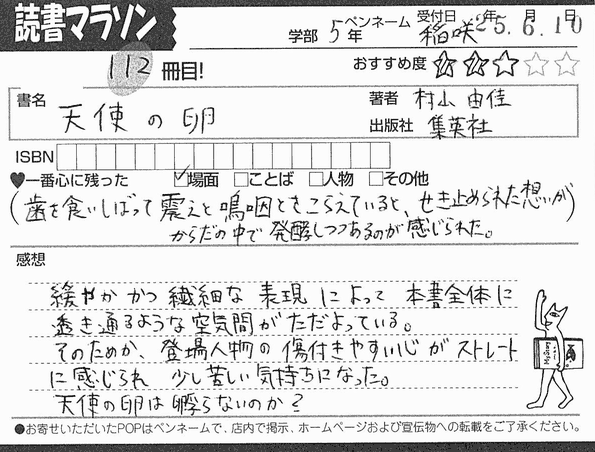 読書マラソン
学部 5年 ペンネーム 稲咲 受付日 '25年6月10日
112冊目!
おすすめ度 ★★★☆☆
書名 天使の卵
著者 村山由佳
出版社 集英社
ISBN
♥一番心に残った ☑場面 □ことば □人物 □その他
(歯を食いしばって震えと嗚咽とをこらえていると、せき止められた想いが
からだの中で発酵しつつあるのが感じられた。)
感想
緩やかかつ繊細な表現によって本書全体に
透き通るような空気間がただよっている。
そのためか、登場人物の傷付きやすい心がストレート
に感じられ少し苦しい気持ちになった。
天使の卵は孵らないのか?
●お寄せいただいたPOPはペンネームで、店内で掲示、ホームページおよび宣伝物への転載をご了承ください。